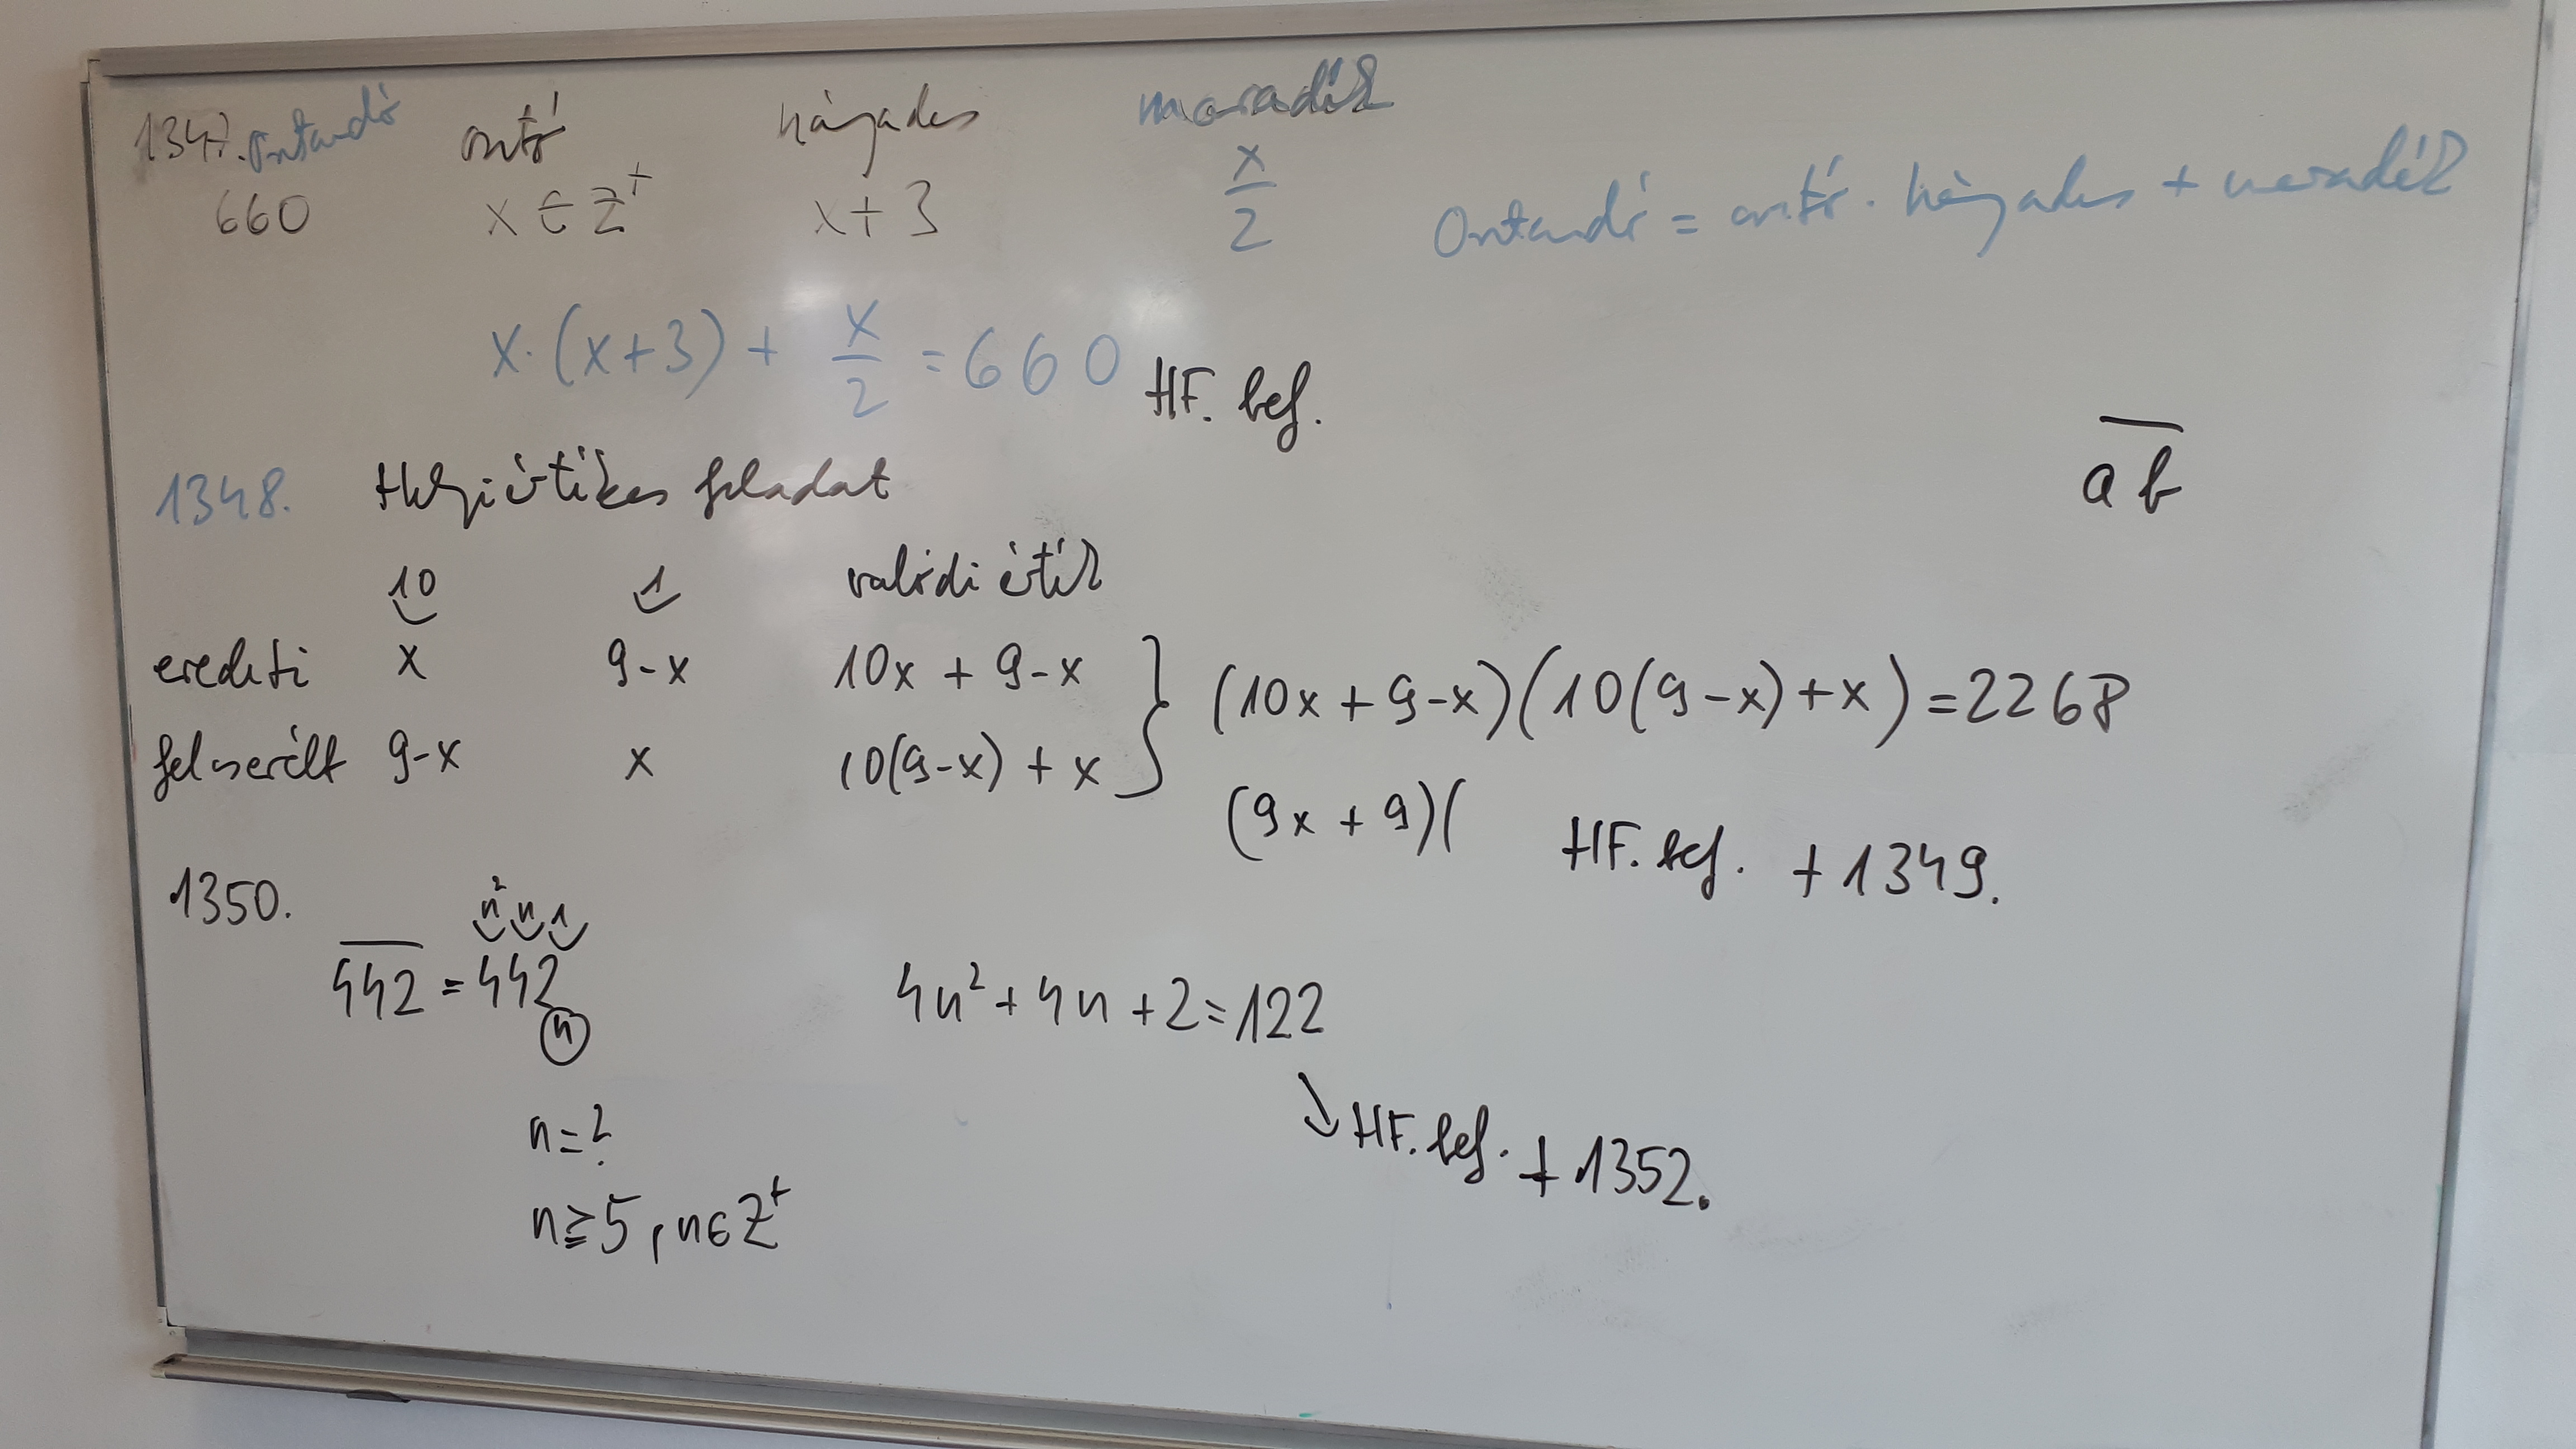 1347. osztandó osztó hányados maradék
660 x ∈ Z⁺ x+3 x/2 Osztandó = osztó · hányados + maradék
x·(x+3) + x/2 = 660 HF. bef.
a̅b̅
1348. Helyiértékes feladat
10 1 valódi érték
eredeti x 9-x 10x + 9-x
felcserélt 9-x x 10(9-x) + x
} (10x + 9-x)(10(9-x)+x) = 2268
(9x + 9)( HF. bef. + 1349.
1350.
n² n 1
4̅4̅2̅ = 442ₙ 4n² + 4n + 2 = 122
n=?
↘ HF. bef. + 1352.
n ≥ 5, n ∈ Z⁺